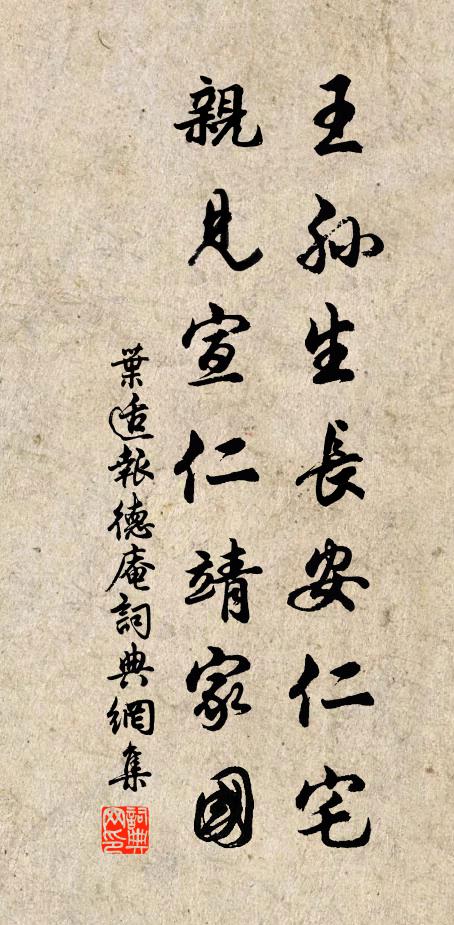 王孫生長安仁宅
親見宣仁靖家國
葉適報德庵詞典網集
詞典网印